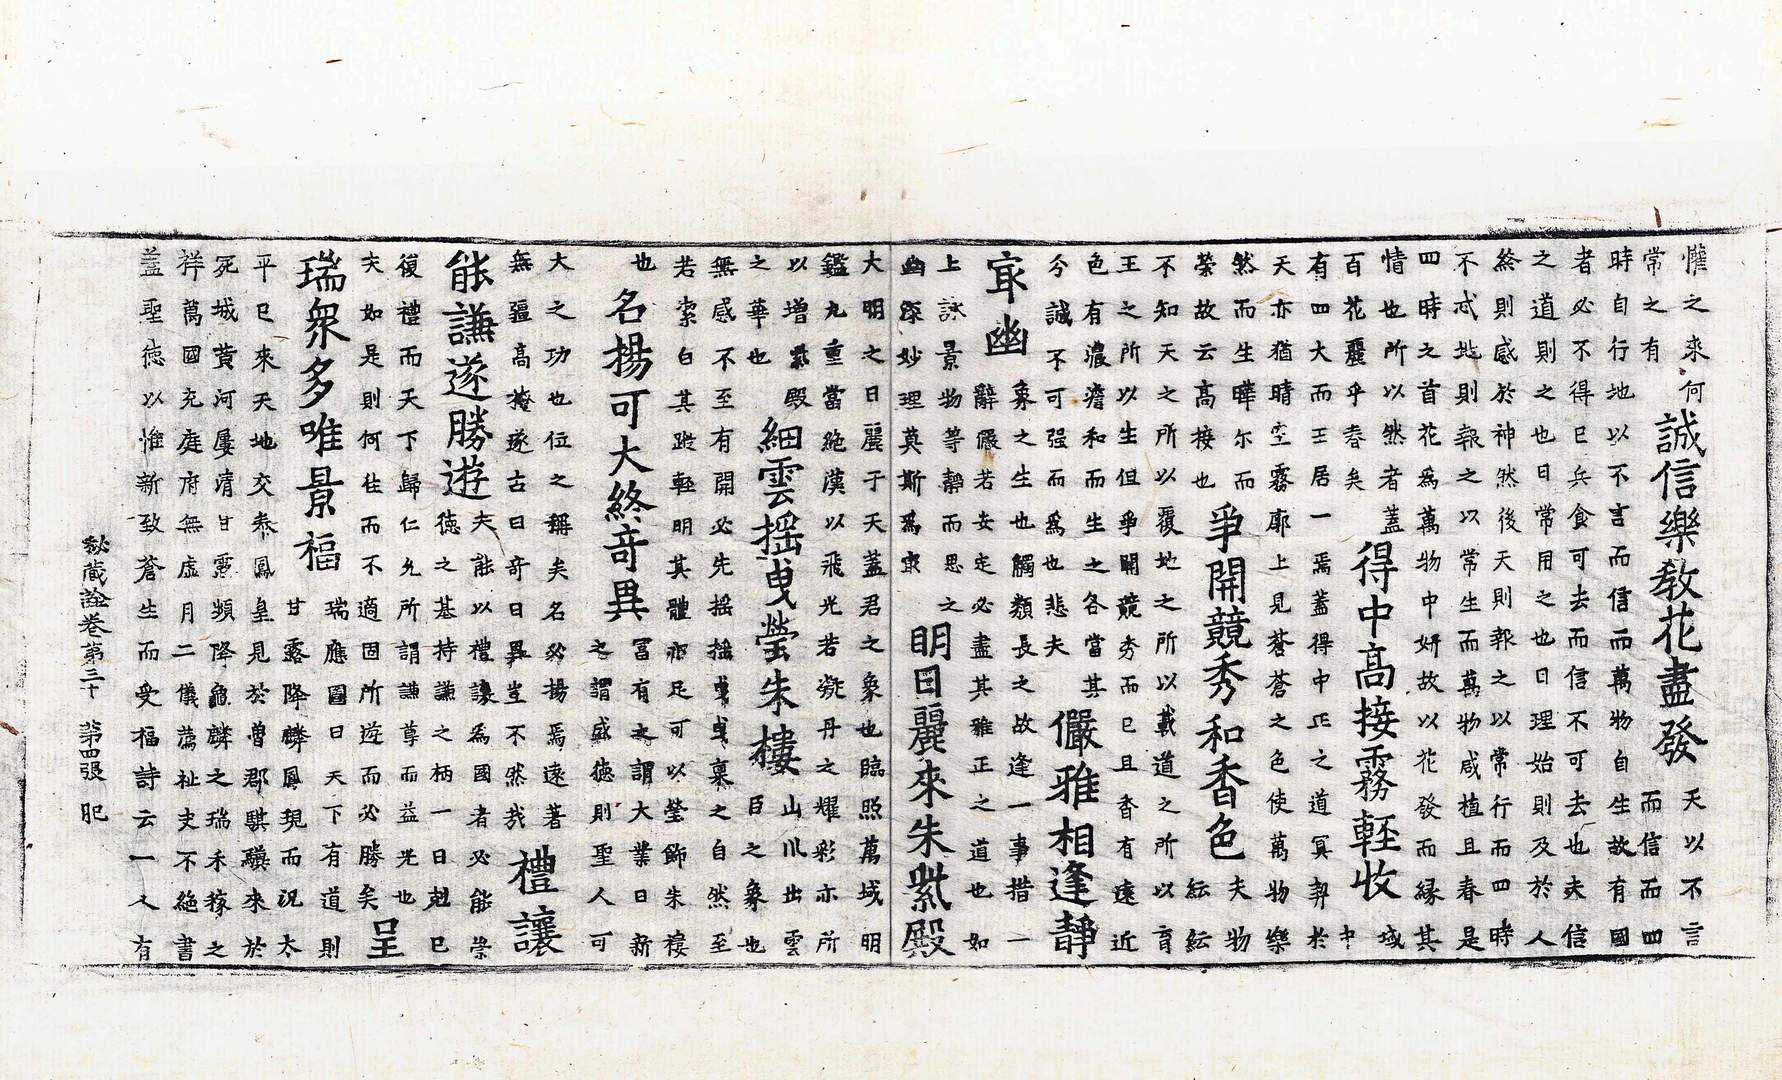 懽之來何
常之有
誠信樂教花盡發
天以不言
而信四
時自行地以不言而信而萬物自生故有國
者必不得已兵食可去而信不可去也夫信
之道則之也日常用之也日理始則及於人
終則感於神然後天則報之以常行而四時
不忒地則報之以常生而萬物咸植且春是
四時之首花爲萬物中妍故以花發而緣其
情也所以然者蓋
百花麗乎春矣
得中高接霧輕收
域
中
有四大而王居一焉蓋得中正之道冥契於
天亦猶晴空霧廓上見蒼蒼之色使萬物樂
然而生曄尔而
榮故云高接也
爭開競秀和香色
夫物
紜紜
不知天之所以覆地之所以載道之所以育
王之所以生但爭開競秀而已且香有遠近
色有濃澹和而生之各當其
今誠不可强而爲也悲夫
儼雅相逢靜
㝡幽
象之生也觸類長之故逢一事措一
辭儼若安定必盡其雅正之道也如
上詠景物等靜而思之
幽深妙理莫斯爲㝡
明日麗來朱紫殿
大明之日麗于天蓋君之象也臨照萬域明
鑑九重當絶漢以飛光若凝丹之耀彩亦所
以增紫殿
之華也
細雲搖曳瑩朱樓
山川出雲
臣之象也
無感不至有開必先搖搖曳曳稟之自然至
若素白其蹤輕明其體亦足可以瑩飾朱樓
也
名揚可大終竒異
富有之謂大業日新
之謂盛德則聖人可
大之功也位之稱矣名必揚焉遠著
無疆高掩遂古曰竒曰異豈不然哉
禮讓
能謙遂勝遊
夫能以禮讓爲國者必能崇
德之基持謙之柄一日剋已
復禮而天下歸仁允所謂謙尊而益光也
夫如是則何往而不適因所遊而必勝矣
呈
瑞衆多唯景福
瑞應圖曰天下有道則
甘露降麟鳳現而況太
平已來天地交泰鳳皇見於魯郡騏驥來於
芮城黃河屢清甘露頻降龜麟之瑞禾稼之
祥萬國充庭府無虛月二儀薦祉史不絶書
蓋聖德以惟新致蒼生而受福詩云一人有
秘藏詮卷第三十 第四張 肥